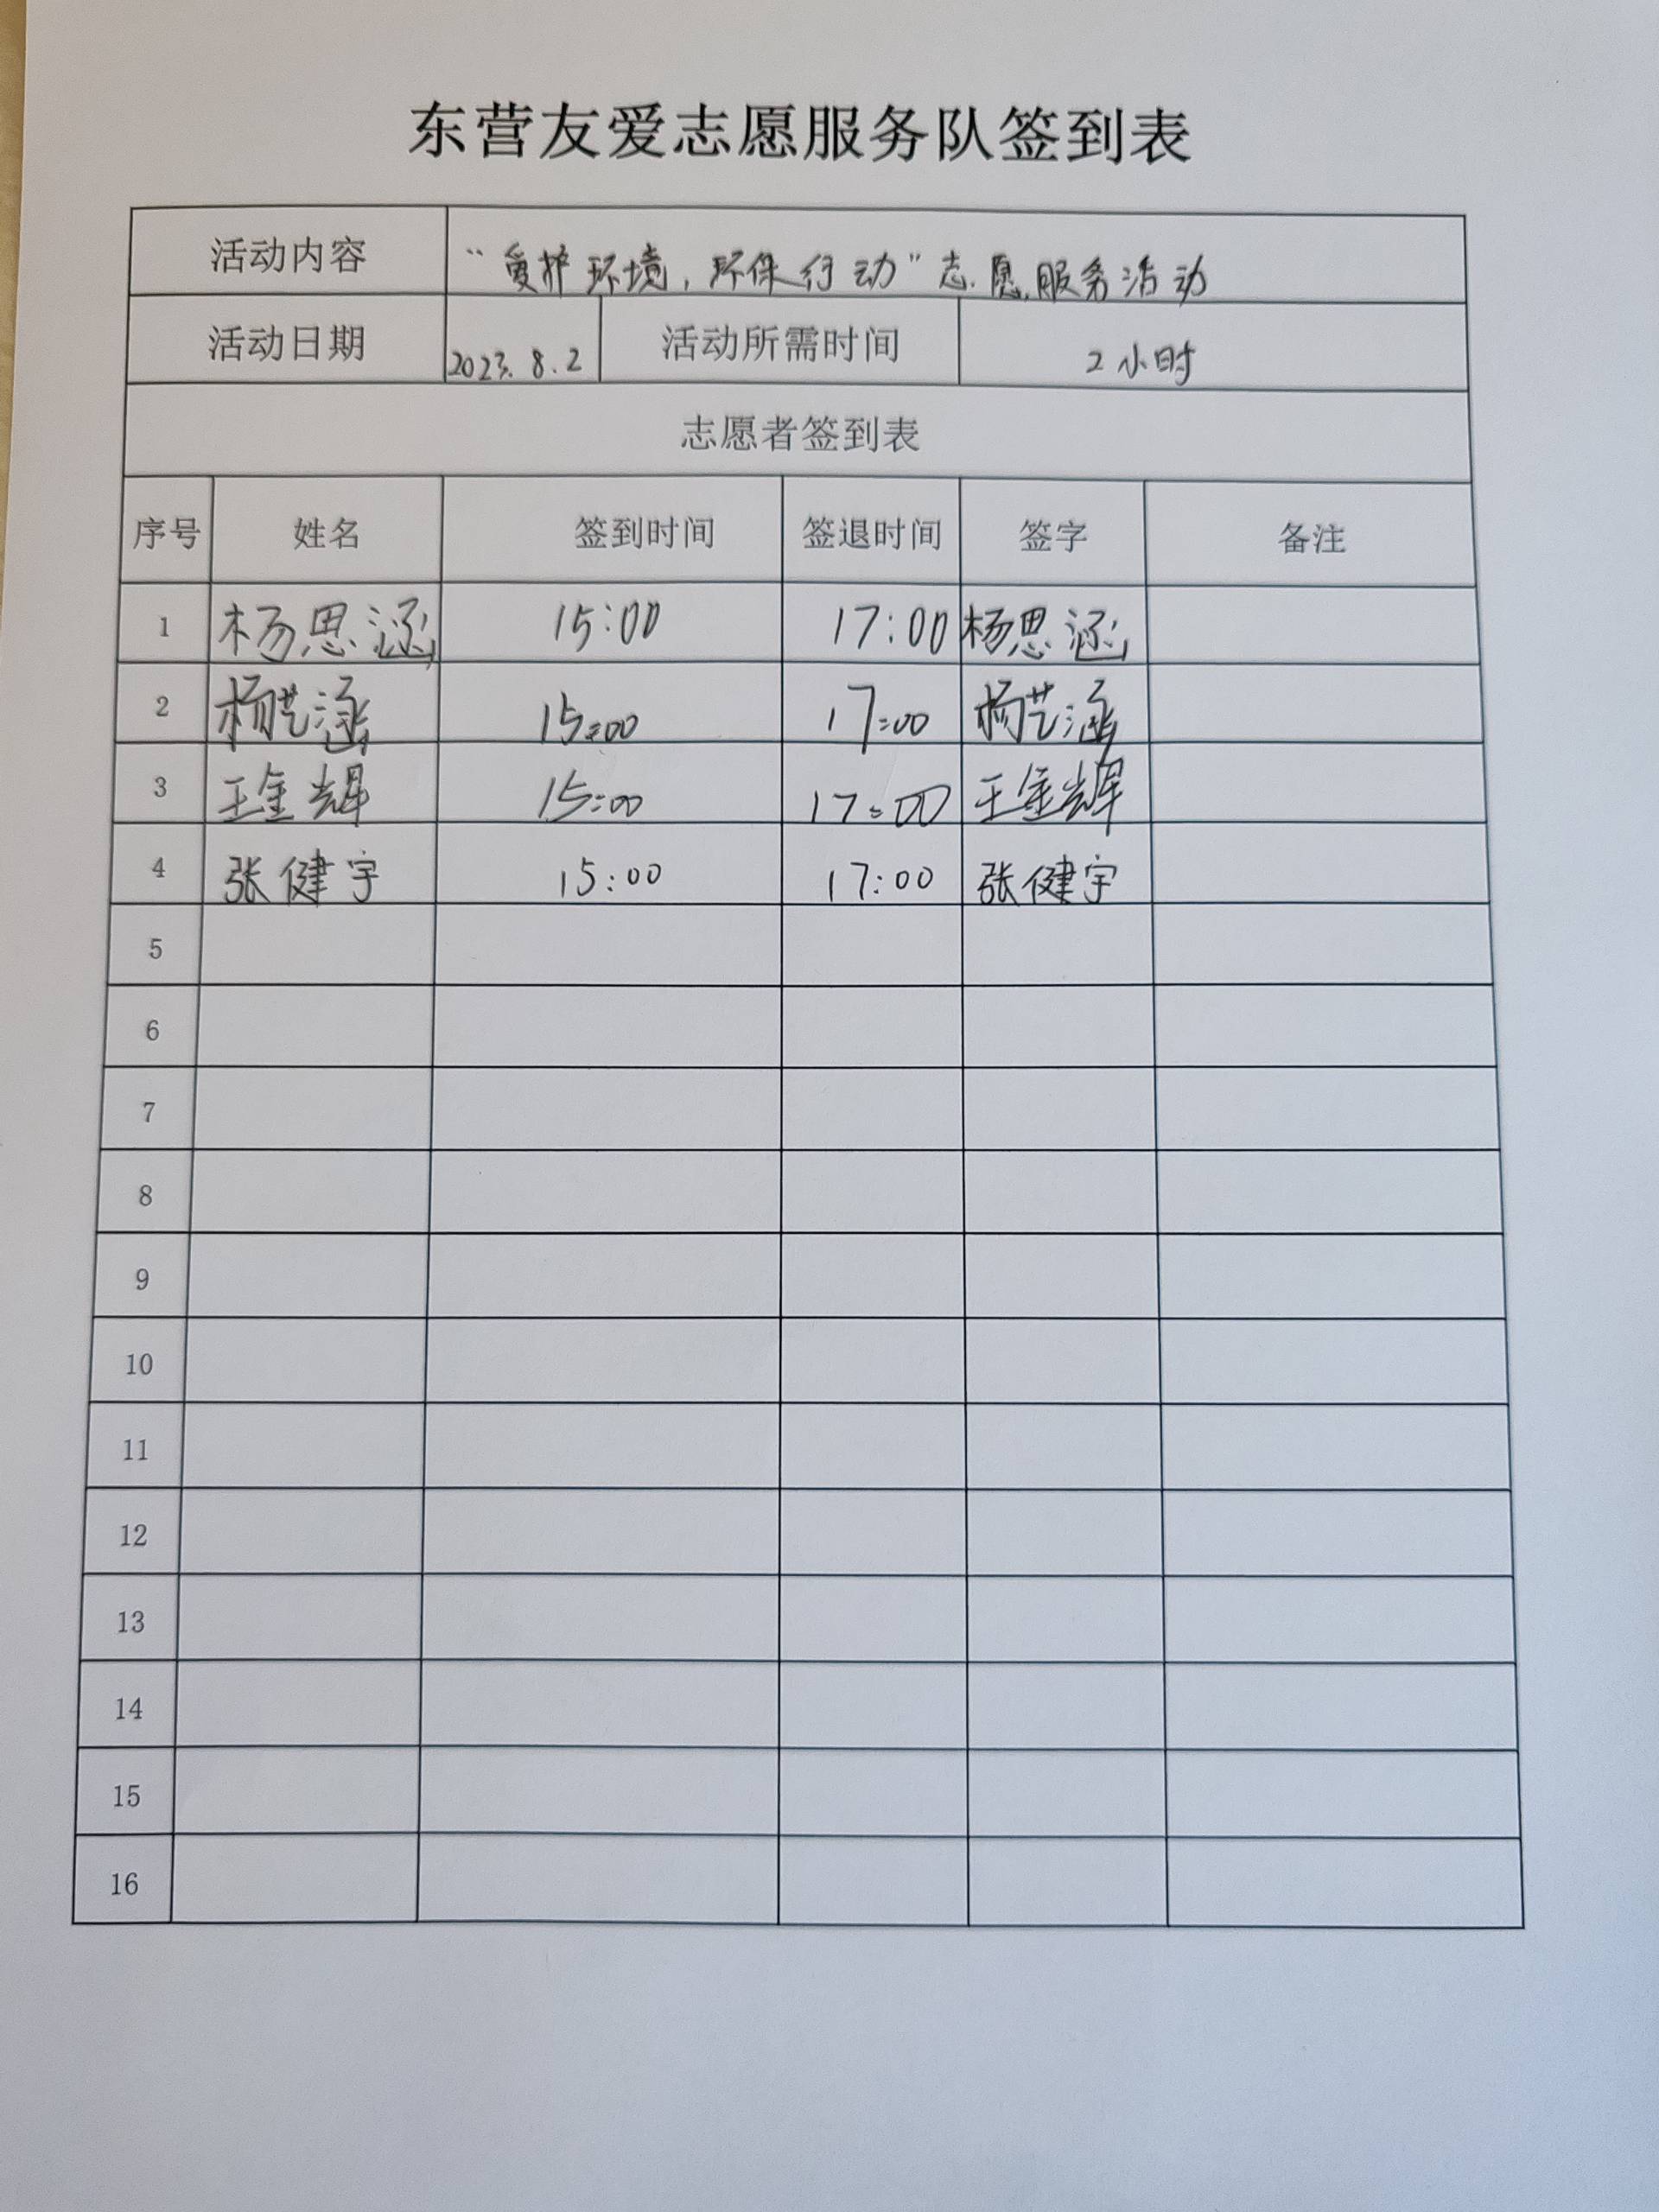 东营友爱志愿服务队签到表
活动内容 “爱护环境，环保行动”志愿服务活动
活动日期 2023.8.2 活动所需时间 2小时
志愿者签到表
序号 姓名 签到时间 签退时间 签字 备注
1 杨思涵 15:00 17:00 杨思涵
2 杨艺涵 15:00 17:00 杨艺涵
3 王金辉 15:00 17:00 王金辉
4 张健宇 15:00 17:00 张健宇
5
6
7
8
9
10
11
12
13
14
15
16